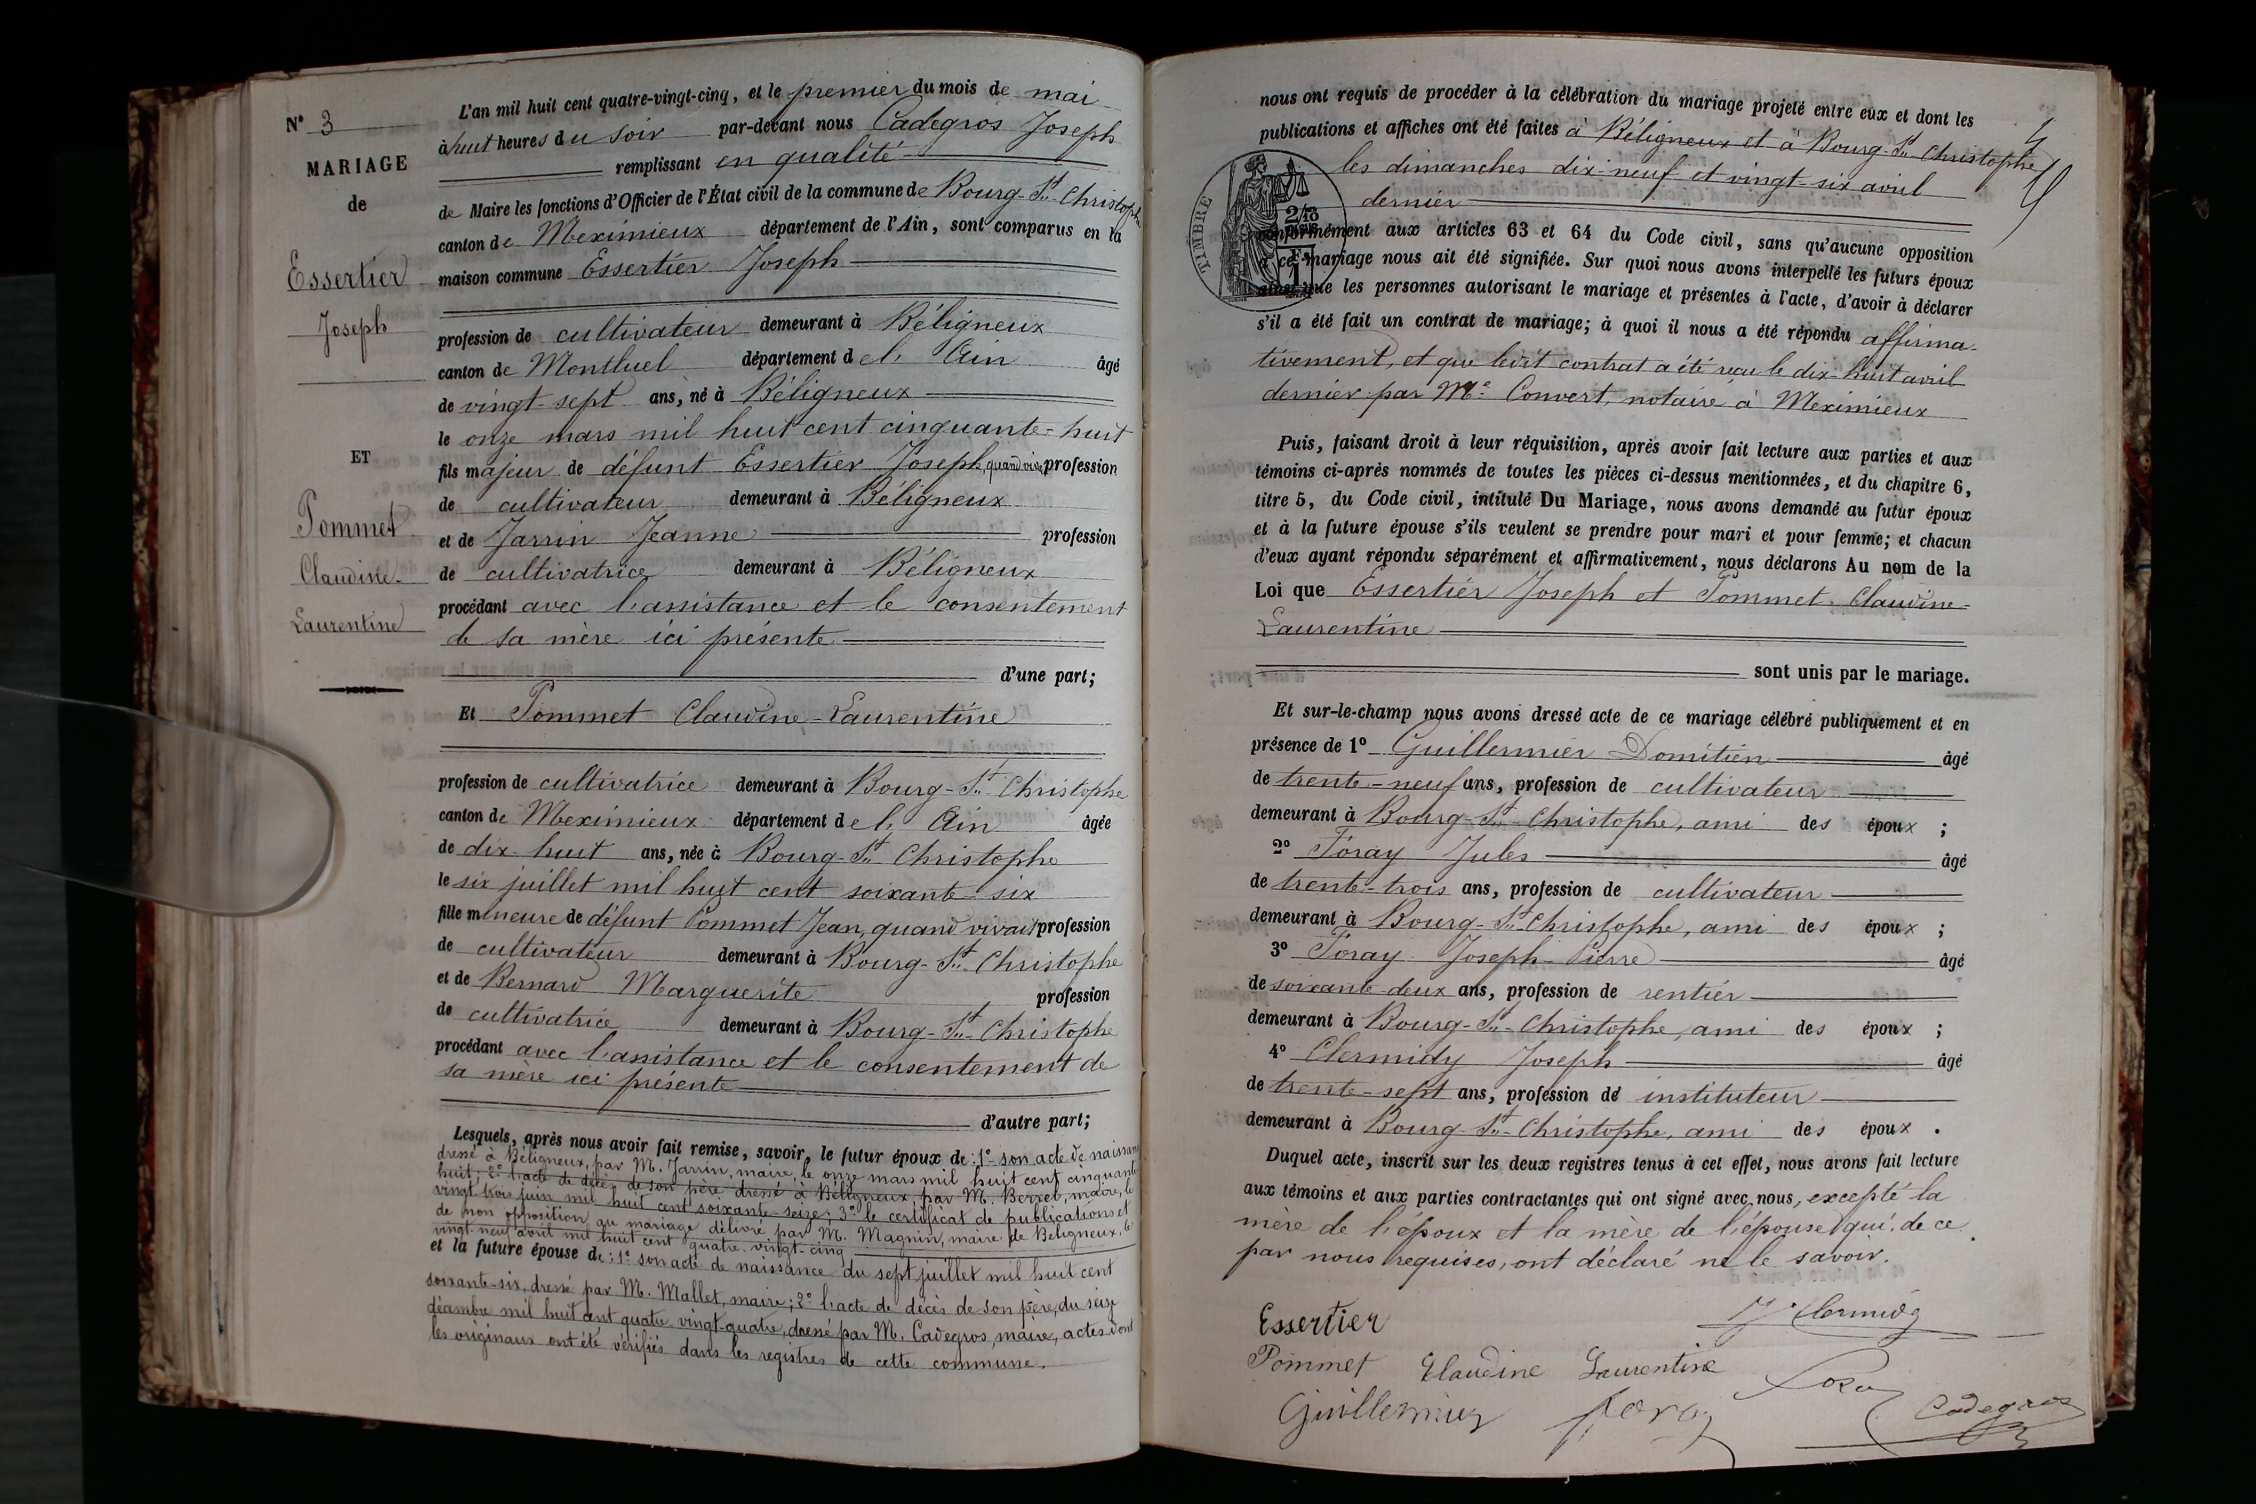 N° 3
MARIAGE
de
Essertier
Joseph
ET
Pommet
Claudine-
Laurentine
L'an mil huit cent quatre-vingt-cinq, et le premier du mois de mai
à huit heures du soir par-devant nous Cadegros Joseph
remplissant en qualité
de Maire les fonctions d'Officier de l'État civil de la commune de Bourg-St-Christophe
canton de Meximieux département de l'Ain, sont comparus en la
maison commune Essertier Joseph
profession de cultivateur demeurant à Béligneux
canton de Montluel département de l'Ain âgé
de vingt-sept ans, né à Béligneux
le onze mars mil huit cent cinquante-huit
fils majeur de défunt Essertier Joseph, quand vivait profession
de cultivateur demeurant à Béligneux
et de Jarrin Jeanne profession
de cultivatrice demeurant à Béligneux
procédant avec l'assistance et le consentement
de sa mère ici présente
d'une part;
Et Pommet Claudine-Laurentine
profession de cultivatrice demeurant à Bourg-St-Christophe
canton de Meximieux département de l'Ain âgée
de dix-huit ans, née à Bourg-St-Christophe
le six juillet mil huit cent soixante-six
fille mineure de défunt Pommet Jean, quand vivait profession
de cultivateur demeurant à Bourg-St-Christophe
et de Bernard Marguerite profession
de cultivatrice demeurant à Bourg-St-Christophe
procédant avec l'assistance et le consentement de
sa mère ici présente
d'autre part;
Lesquels, après nous avoir fait remise, savoir, le futur époux de: 1° son acte de naissance
dressé à Béligneux, par M. Jarrin, maire, le onze mars mil huit cent cinquante
huit; 2° l'acte de décès de son père dressé à Béligneux, par M. Berret, maire, le
vingt trois juin mil huit cent soixante-seize; 3° le certificat de publications et
de non opposition au mariage délivré par M. Magnin, maire de Béligneux, le
vingt-neuf avril mil huit cent quatre-vingt-cinq
et la future épouse de: 1° son acte de naissance du sept juillet mil huit cent
soixante-six, dressé par M. Mallet, maire; 2° l'acte de décès de son père, du seize
décembre mil huit cent quatre-vingt-quatre, dressé par M. Cadegros, maire, actes dont
les originaux ont été vérifiés dans les registres de cette commune.
nous ont requis de procéder à la célébration du mariage projeté entre eux et dont les
publications et affiches ont été faites à Béligneux et à Bourg-St-Christophe
les dimanches dix-neuf et vingt-six avril
dernier
TIMBRE
conformément aux articles 63 et 64 du Code civil, sans qu'aucune opposition
à ce mariage nous ait été signifiée. Sur quoi nous avons interpellé les futurs époux
ainsi que les personnes autorisant le mariage et présentes à l'acte, d'avoir à déclarer
s'il a été fait un contrat de mariage; à quoi il nous a été répondu affirma-
tivement, et que ledit contrat a été reçu le dix-huit avril
dernier par Me Convert, notaire à Meximieux
Puis, faisant droit à leur réquisition, après avoir fait lecture aux parties et aux
témoins ci-après nommés de toutes les pièces ci-dessus mentionnées, et du chapitre 6,
titre 5, du Code civil, intitulé Du Mariage, nous avons demandé au futur époux
et à la future épouse s'ils veulent se prendre pour mari et pour femme; et chacun
d'eux ayant répondu séparément et affirmativement, nous déclarons Au nom de la
Loi que Essertier Joseph et Pommet Claudine-
Laurentine
sont unis par le mariage.
Et sur-le-champ nous avons dressé acte de ce mariage célébré publiquement et en
présence de 1° Guillermier Domitien âgé
de trente-neuf ans, profession de cultivateur
demeurant à Bourg-St-Christophe, ami des époux ;
2° Foray Jules âgé
de trente-trois ans, profession de cultivateur
demeurant à Bourg-St-Christophe, ami des époux ;
3° Foray Joseph-Pierre âgé
de soixante-deux ans, profession de rentier
demeurant à Bourg-St-Christophe, ami des époux ;
4° Clermidy Joseph âgé
de trente-sept ans, profession de instituteur
demeurant à Bourg-St-Christophe, ami des époux .
Duquel acte, inscrit sur les deux registres tenus à cet effet, nous avons fait lecture
aux témoins et aux parties contractantes qui ont signé avec nous, excepté la
mère de l'époux et la mère de l'épouse qui, de ce
par nous requises, ont déclaré ne le savoir.
Essertier
J. Clermidy
Pommet Claudine Laurentine
Foray
Guillermier
Foray
Cadegros